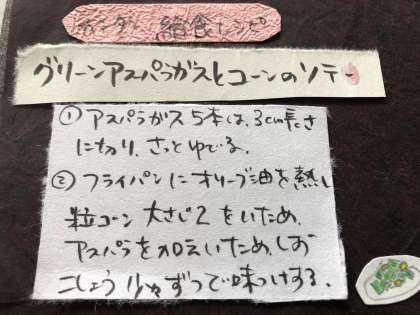 給食レシピ
グリーンアスパラガスとコーンのソテー
① アスパラガス 5本は、3cm長さ
に切り、さっとゆでる。
② フライパンに オリーブ油を熱し
粒コーン 大さじ2 をいため、
アスパラを加えいため、しお
こしょう 少々ずつで味つけする。